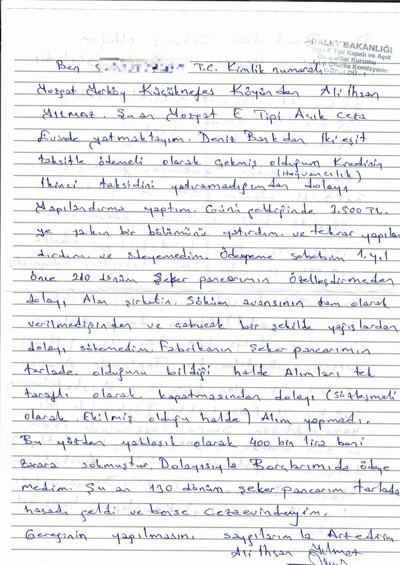 ADALET BAKANLIĞI
E Tipi Kapalı ve Açık
Ceza İnfaz Kurumu
Okuma Komisyonu
GÖRÜLDÜ
Ben T.C. Kimlik numaralı
Yozgat Merkez Küçüknefes Köyünden Ali İhsan
YILMAZ. Şuan Yozgat E Tipi Açık ceza
Evinde yatmaktayım. Deniz Bankdan İki eşit
taksitle ödemeli olarak Çekmiş olduğum Kredinin
(Hayvancılık)
İkinci taksidini yatıramadığımdan dolayı
Yapılandırma yaptım. Günü geldiğinde 2.500 TL.
ye yakın bir bölümünü yatırdım. ve tekrar yapılan
dırdım. ve ödeyemedim. Ödeyememe sebebim 1. yıl
önce 210 dönüm Şeker pancarımın özelleştirmeden
dolayı Alan şirketin. Söküm avansının tam olarak
verilmediğinden ve çabucak bir şekilde yağışlardan
dolayı sökemedim. Fabrikanın Şeker pancarımın
tarlada olduğunu bildiği halde Alımları tek
taraflı olarak kapatmasından dolayı (Sözleşmeli
olarak Ekilmiş olduğu halde) Alım yapmadı.
Bu yüzden yaklaşık olarak 400 bin lira beni
zarara sokmuştur. Dolayısıyla Borçlarımı da ödeye
medim. Şu an 130 dönüm şeker pancarım tarlada
hasadı geldi ve bense Cezaevindeyim.
Gereğinin yapılmasını saygılarımla Arz ederim
Ali İhsan Yılmaz